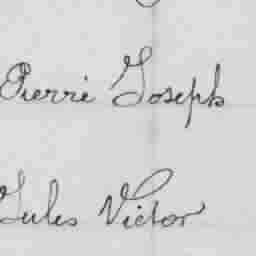 Pierre Joseph
Jules Victor